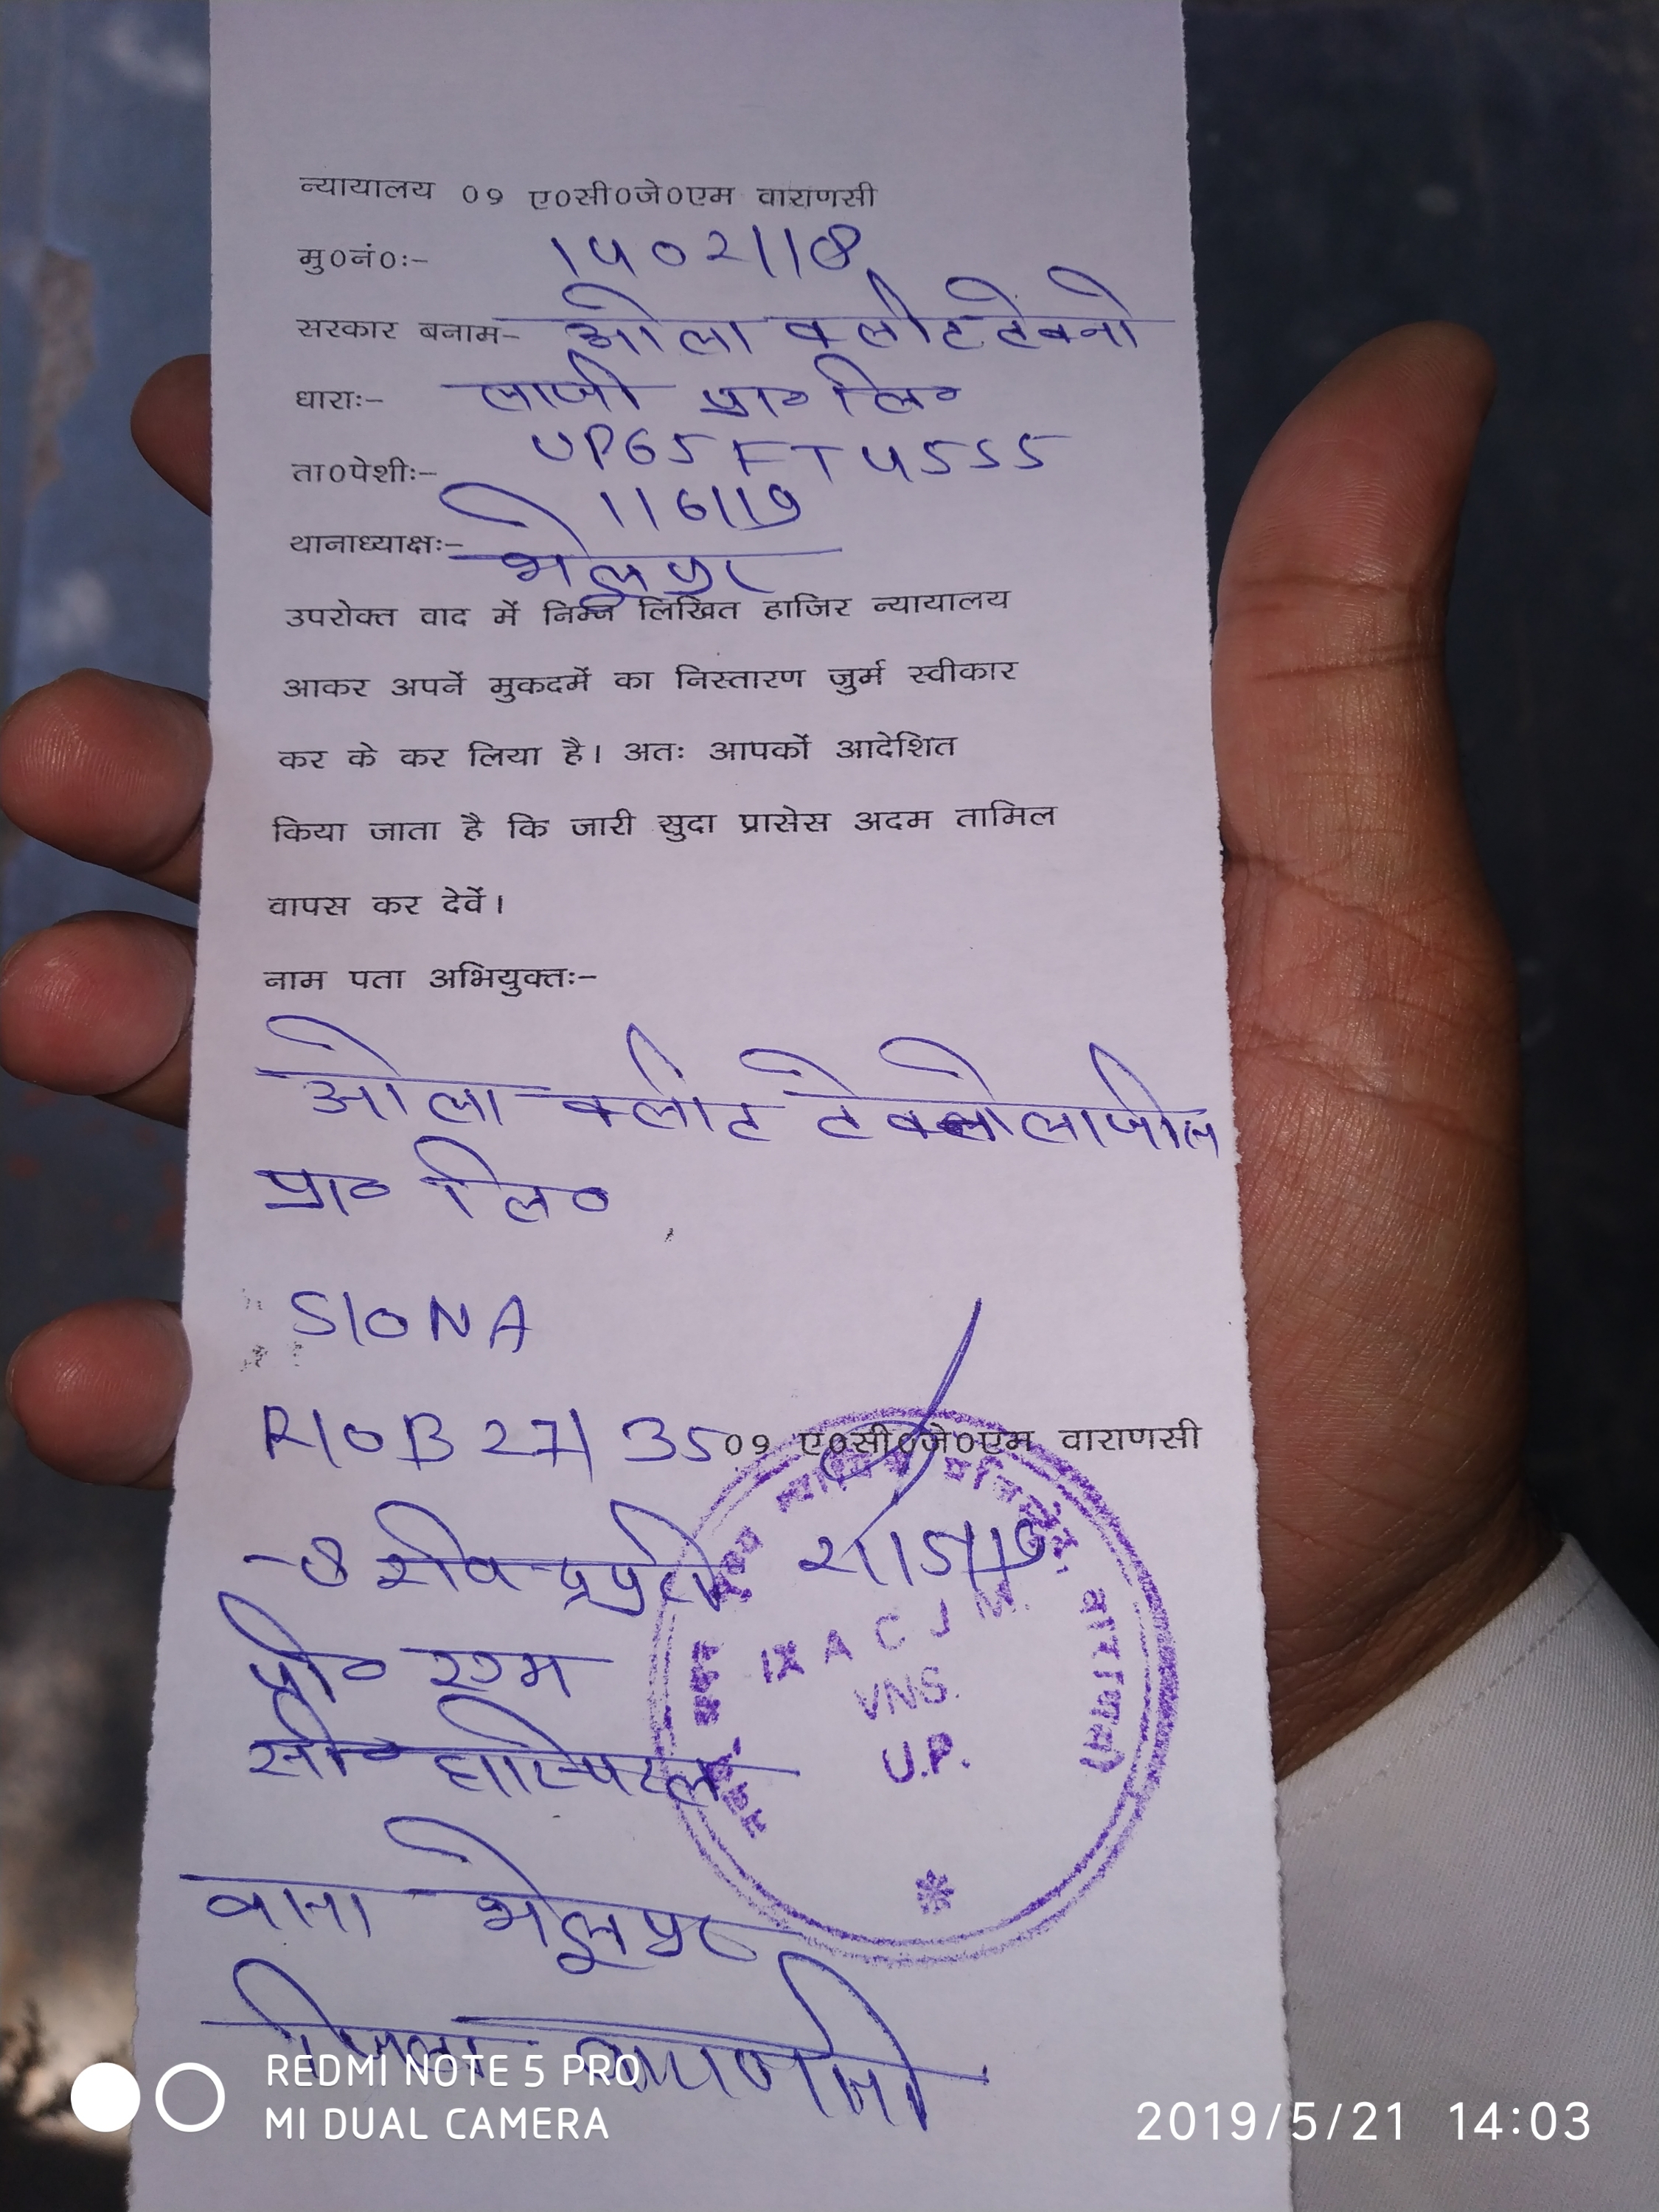 न्यायालय 09 ए0सी0जे0एम वाराणसी
मु0नं0ः- 1402/18
सरकार बनाम- ओला क्लीट टेक्नो
धाराः- लाजी प्रा० लि०
UP65FT4555
ता0पेशीः- 1/6/19
थानाध्याक्षः- भेलूपुर
उपरोक्त वाद में निम्न लिखित हाजिर न्यायालय
आकर अपनें मुकदमें का निस्तारण जुर्म स्वीकार
कर के कर लिया है। अतः आपकों आदेशित
किया जाता है कि जारी सुदा प्रासेस अदम तामिल
वापस कर देवें।
नाम पता अभियुक्तः-
ओला क्लीट
प्रा० लि०
S/O NA
R/O B 27/35
09 ए0सी0जे0एम वाराणसी
IX A C J M.
VNS.
U.P.
हास्पिटल
थाना भेलूपुर
जिला वाराणसी
REDMI NOTE 5 PRO
MI DUAL CAMERA
2019/5/21 14:03